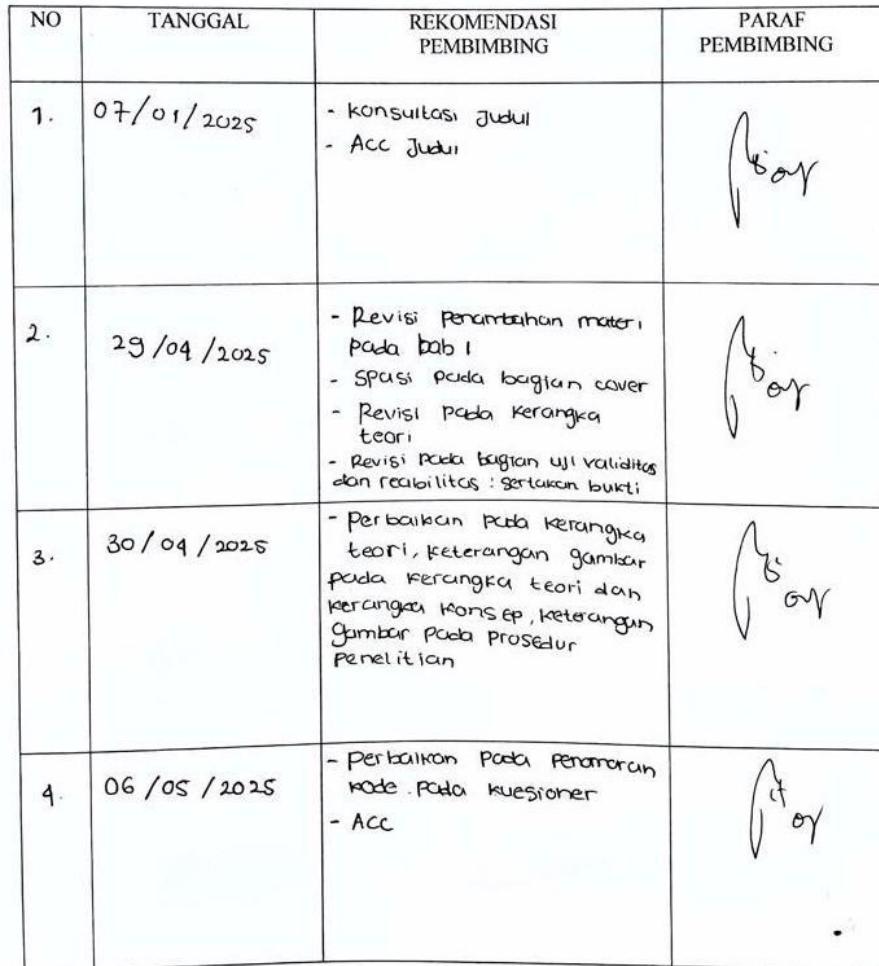 NO TANGGAL REKOMENDASI PEMBIMBING PARAF PEMBIMBING
1. 07/01/2025
- Konsultasi Judul
- ACC Judul
2. 29/04/2025
- Revisi penambahan materi
pada bab 1
- Spasi pada bagian cover
- Revisi pada kerangka
teori
- Revisi pada bagian uji validitas
dan reabilitas : sertakan bukti
3. 30/04/2025
- Perbaikan pada kerangka
teori, keterangan gambar
pada kerangka teori dan
kerangka konsep, keterangan
gambar pada prosedur
penelitian
4. 06/05/2025
- Perbaikan pada penomoran
kode pada kuesioner
- ACC